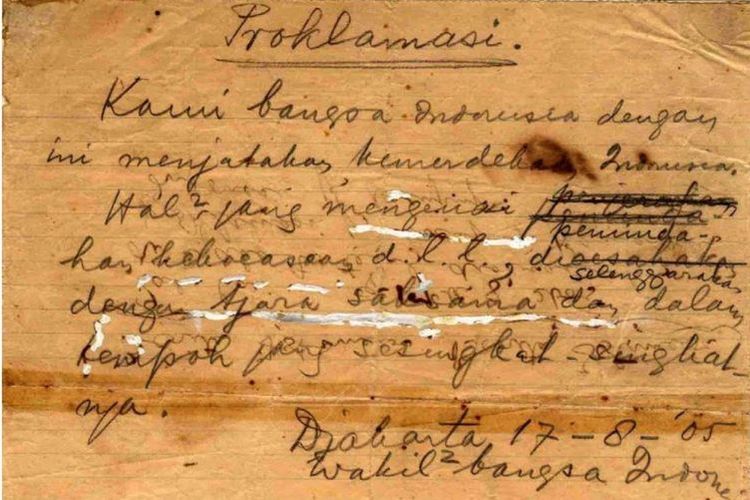 Proklamasi.
Kami bangsa Indonesia dengan
ini menjatakan kemerdekaan Indonesia.
Hal² jang mengenai penjerahan
peminda-
han kekoeasaan, d.l.l., dioesahakan
selenggarakan
dengan tjara saksama dan dalam
tempoh jang sesingkat-singkat-
nja.
Djakarta 17 - 8 - '05
Wakil² bangsa Indone